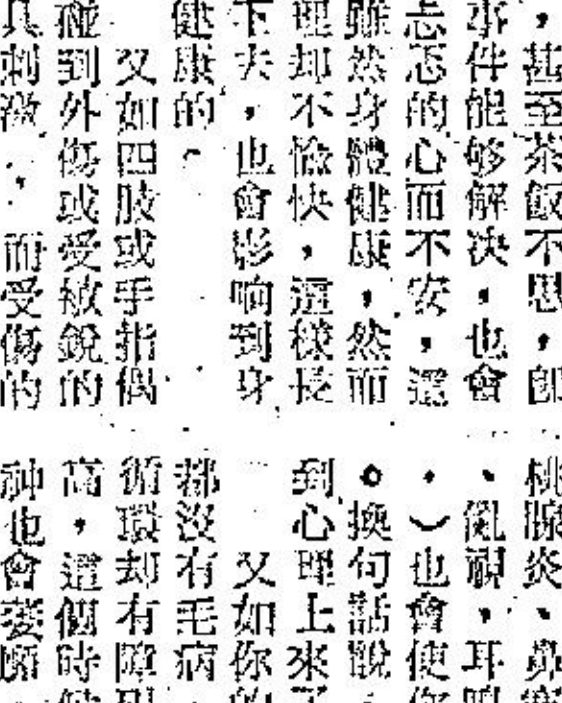 ，甚至茶飯不思，郎
事件能够解决，也會
忐忑的心而不安，這
雖然身體健康，然而
理却不愉快，這樣長
下去，也會影响到身
健康的。
又如四肢或手指偶
碰到外傷或受被銳的
具刺激，而受傷的
桃腺炎、鼻
、亂視，、耳
，）也會使
。換句話說
到心理上來
又如你的
都沒有毛病
循環却有障
高，這個時
神也會萎靡